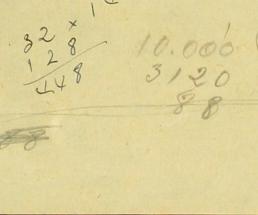 32 ×
128
448
10.000
3120
88
88